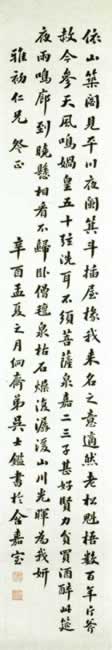 依山築閣見平川夜闌箕斗插屋椽我来名之意適然老松魁梧數百年斤斧
赦今參天風鳴媧皇五十弦洗耳不須菩薩泉嘉二三子甚好賢力貧買酒醉此筵
夜雨鳴廊到曉懸相看不歸卧僧氈泉枯石燥復潺湲山川光暉為我妍
雅初仁兄正 辛酉孟夏之月絅齋弟吳士鑑書於含嘉室